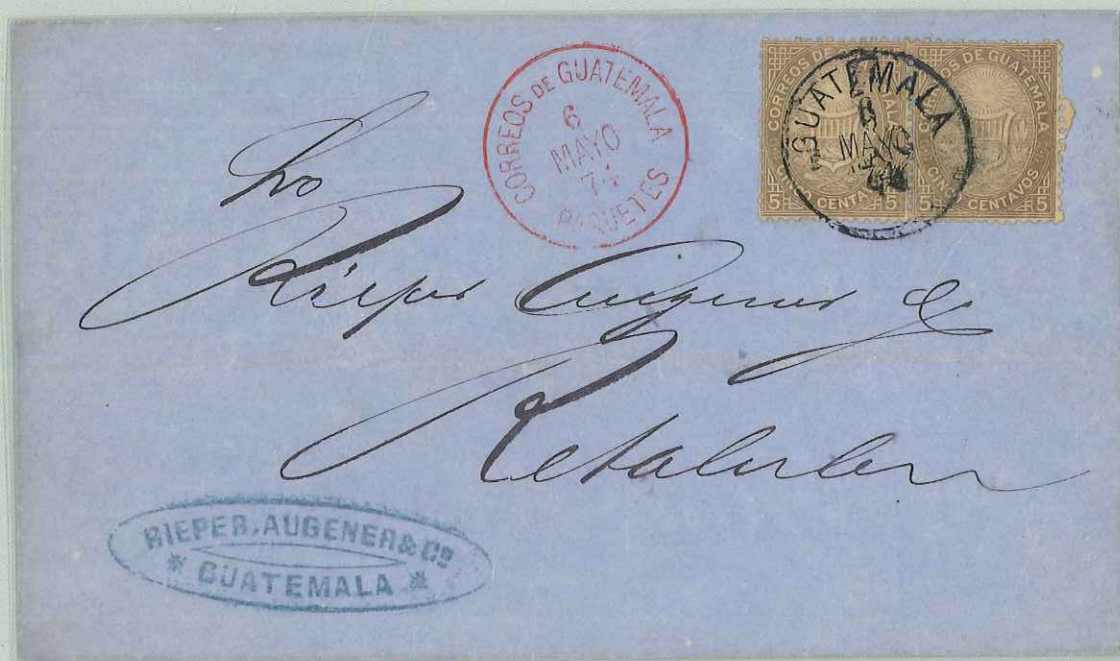 CORREOS DE GUATEMALA
6
MAYO
PAQUETES
CORREOS DE GUATEMALA
5 CINCO CENTAVOS 5
CORREOS DE GUATEMALA
5 CINCO CENTAVOS 5
GUATEMALA
MAYO
Rieper Augener
Retaluleu
RIEPER, AUGENER & Co
* GUATEMALA *